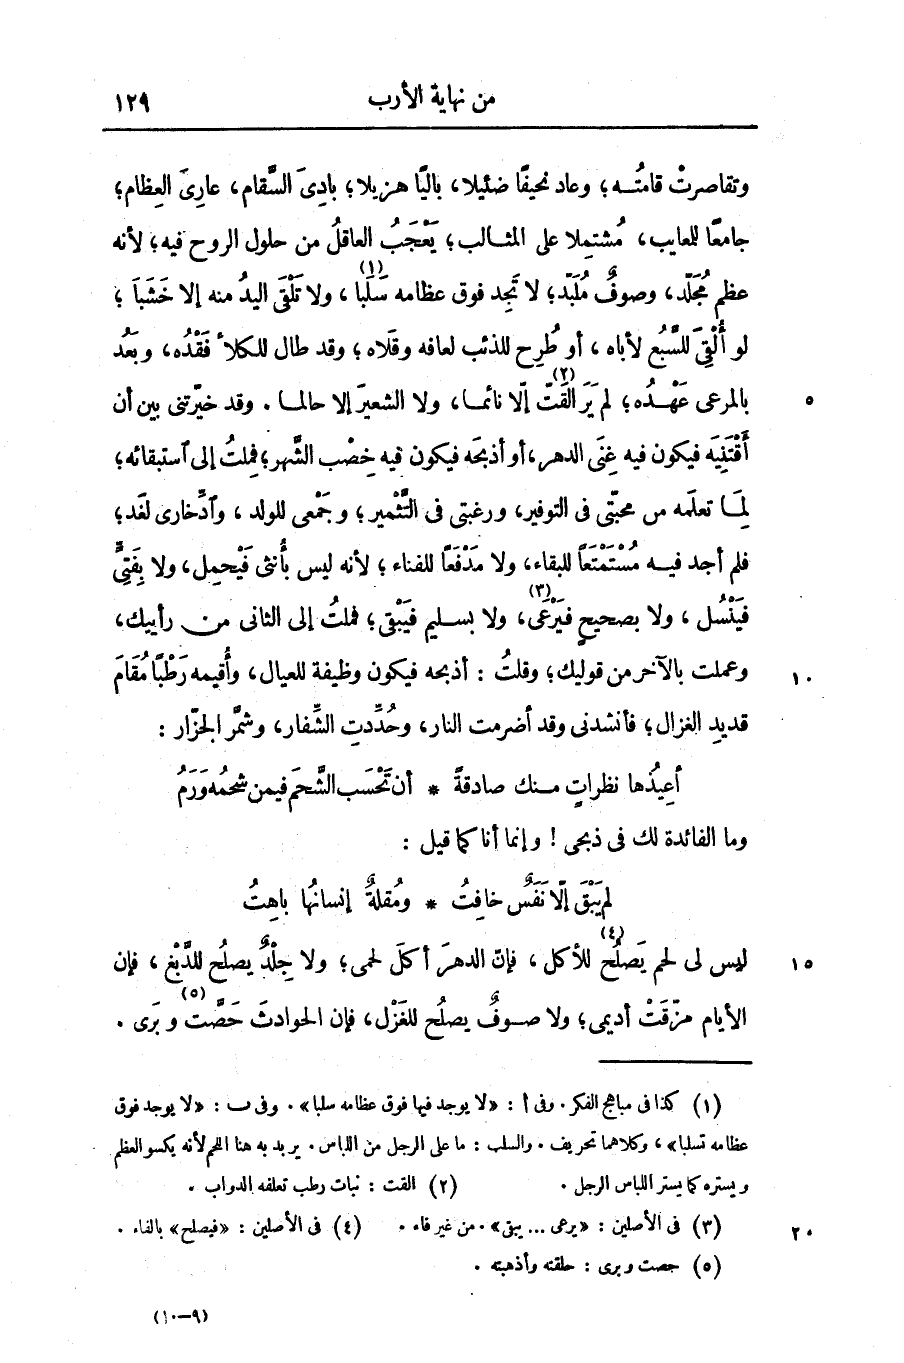 من نهاية الأرب ١٢٩
وتقاصرتْ قامتُـــه؛ وعاد نحيفًا ضئيلا، باليًا هزيلا؛ بادِىَ السَّقام، عارِىَ العِظام؛
جامعًا للمعايب، مُشتمِلا على المثـالب؛ يَعْجَبُ العاقلُ من حلول الروح فيه؛ لأنه
عظم مُجَلَّد، وصوفٌ مُلَبَّد؛ لا تَجِد فوق عظامه سَلَبا (١)، ولا تَلْقَى اليدُ منه إلا خَشَبا؛
لو أُلْقِىَ للسَّبُع لأباه، أو طُرِح للذئب لعافه وقَلَاه؛ وقد طال للكلأ فَقْدُه، وبَعُد
بالمرعى عَهْـدُه؛ لم يَرَ القَتَّ (٢) إلّا نائمـا، ولا الشعيرَ إلا حالمـا. وقد خيّرتنى بين أن ٥
أَقْتَنِيَه فيكون فيه غِنَى الدهر، أو أذبحَه فيكون فيه خِصْب الشَّهر؛ فملتُ إلى ٱستبقائه؛
لِمَـا تعلَمه من محبّتى فى التوفير، ورغبتى فى التَّثْمير؛ وجَمْعى للولد، وٱدِّخارى لغَد؛
فلم أجد فيــه مُسْتَمْتَعاً للبقاء، ولا مَدْفَعاً للفناء؛ لأنه ليس بأُنثى فَيحمِل، ولا بِفَتِىٍّ
فيَنْسُل، ولا بصحيحٍ فيَرْعَى (٣)، ولا بســليم فيَبْقَى؛ فملتُ إلى الثانى من رأييك،
وعملت بالآخر من قوليك؛ وقلتُ: أذبحه فيكون وظيفة للعيال، وأُقيمه رَطْبًا مُقَامَ ١٠
قديدِ الغزال؛ فأنشدنى وقد أضرمت النار، وحُدِّدتِ الشِّفار، وشمَّر الجزّار:
أُعِيذُها نظراتٍ مــنك صادقةً * أن تَحْسَب الشَّحمَ فيمن شحمُه وَرَمُ
وما الفائدة لك فى ذبحى! وإنما أنا كما قيل:
لم يَبْقَ إلّا نَفَسٌ خافِتُ * ومُقلةٌ إنسانُها باهِتُ
ليس لى لحم يَصلُح (٤) للأكل، فإنّ الدهرَ أكلَ لحمى؛ ولا جِلْدٌ يصلُح للدَّبْغ، فإن ١٥
الأيام مزّقَتْ أديمى؛ ولا صــوفٌ يصلُح للغَزْل، فإن الحوادثَ حَصَّت (٥) وبَرَى.
(١) كذا فى مباهج الفكر. وفى أ: «لا يوجد فيها فوق عظامه سلبا». وفى ب: «لا يوجد فوق
عظامه تسلبا»، وكلاهما تحريف. والسلب: ما على الرجل من اللباس. يريد به هنا اللحم لأنه يكسو العظم
ويستره كما يستر اللباس الرجل. (٢) القت: نبات رطب تعلفه الدواب.
(٣) فى الأصلين: «يرعى ... يبق». من غير فاء. (٤) فى الأصلين: «فيصلح» بالفاء. ٢٠
(٥) حصت وبرى: حلقته وأذهبته.
(٩-١٠)